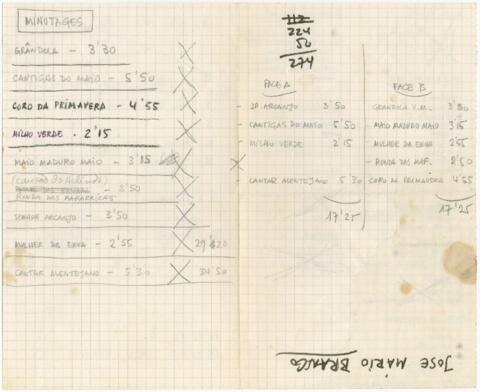 MINUTAGES
GRÂNDOLA - 3'30
CANTIGAS DO MAIO - 5'50
CORO DA PRIMAVERA - 4'55
MILHO VERDE - 2'15
MAIO MADURO MAIO - 3'15
- 3'50
RONDA DAS MAFARRICAS
SENHOR ARCANJO - 3'50
MULHER DA ERVA - 2'55 29'20
CANTAR ALENTEJANO - 5'30 34'50
112
224
50
274
FACE A
SR ARCANJO 3'50
- CANTIGAS DO MAIO 5'50
- MILHO VERDE 2'15
- CANTAR ALENTEJANO 5'30
17'25
FACE B
GRANDOLA V.M. - 3'30
MAIO MADURO MAIO 3'15
MULHER DA ERVA 2'55
- RONDA DAS MAF. 2'50
CORO DA PRIMAVERA 4'55
17'25
JOSÉ MÁRIO BRANCO